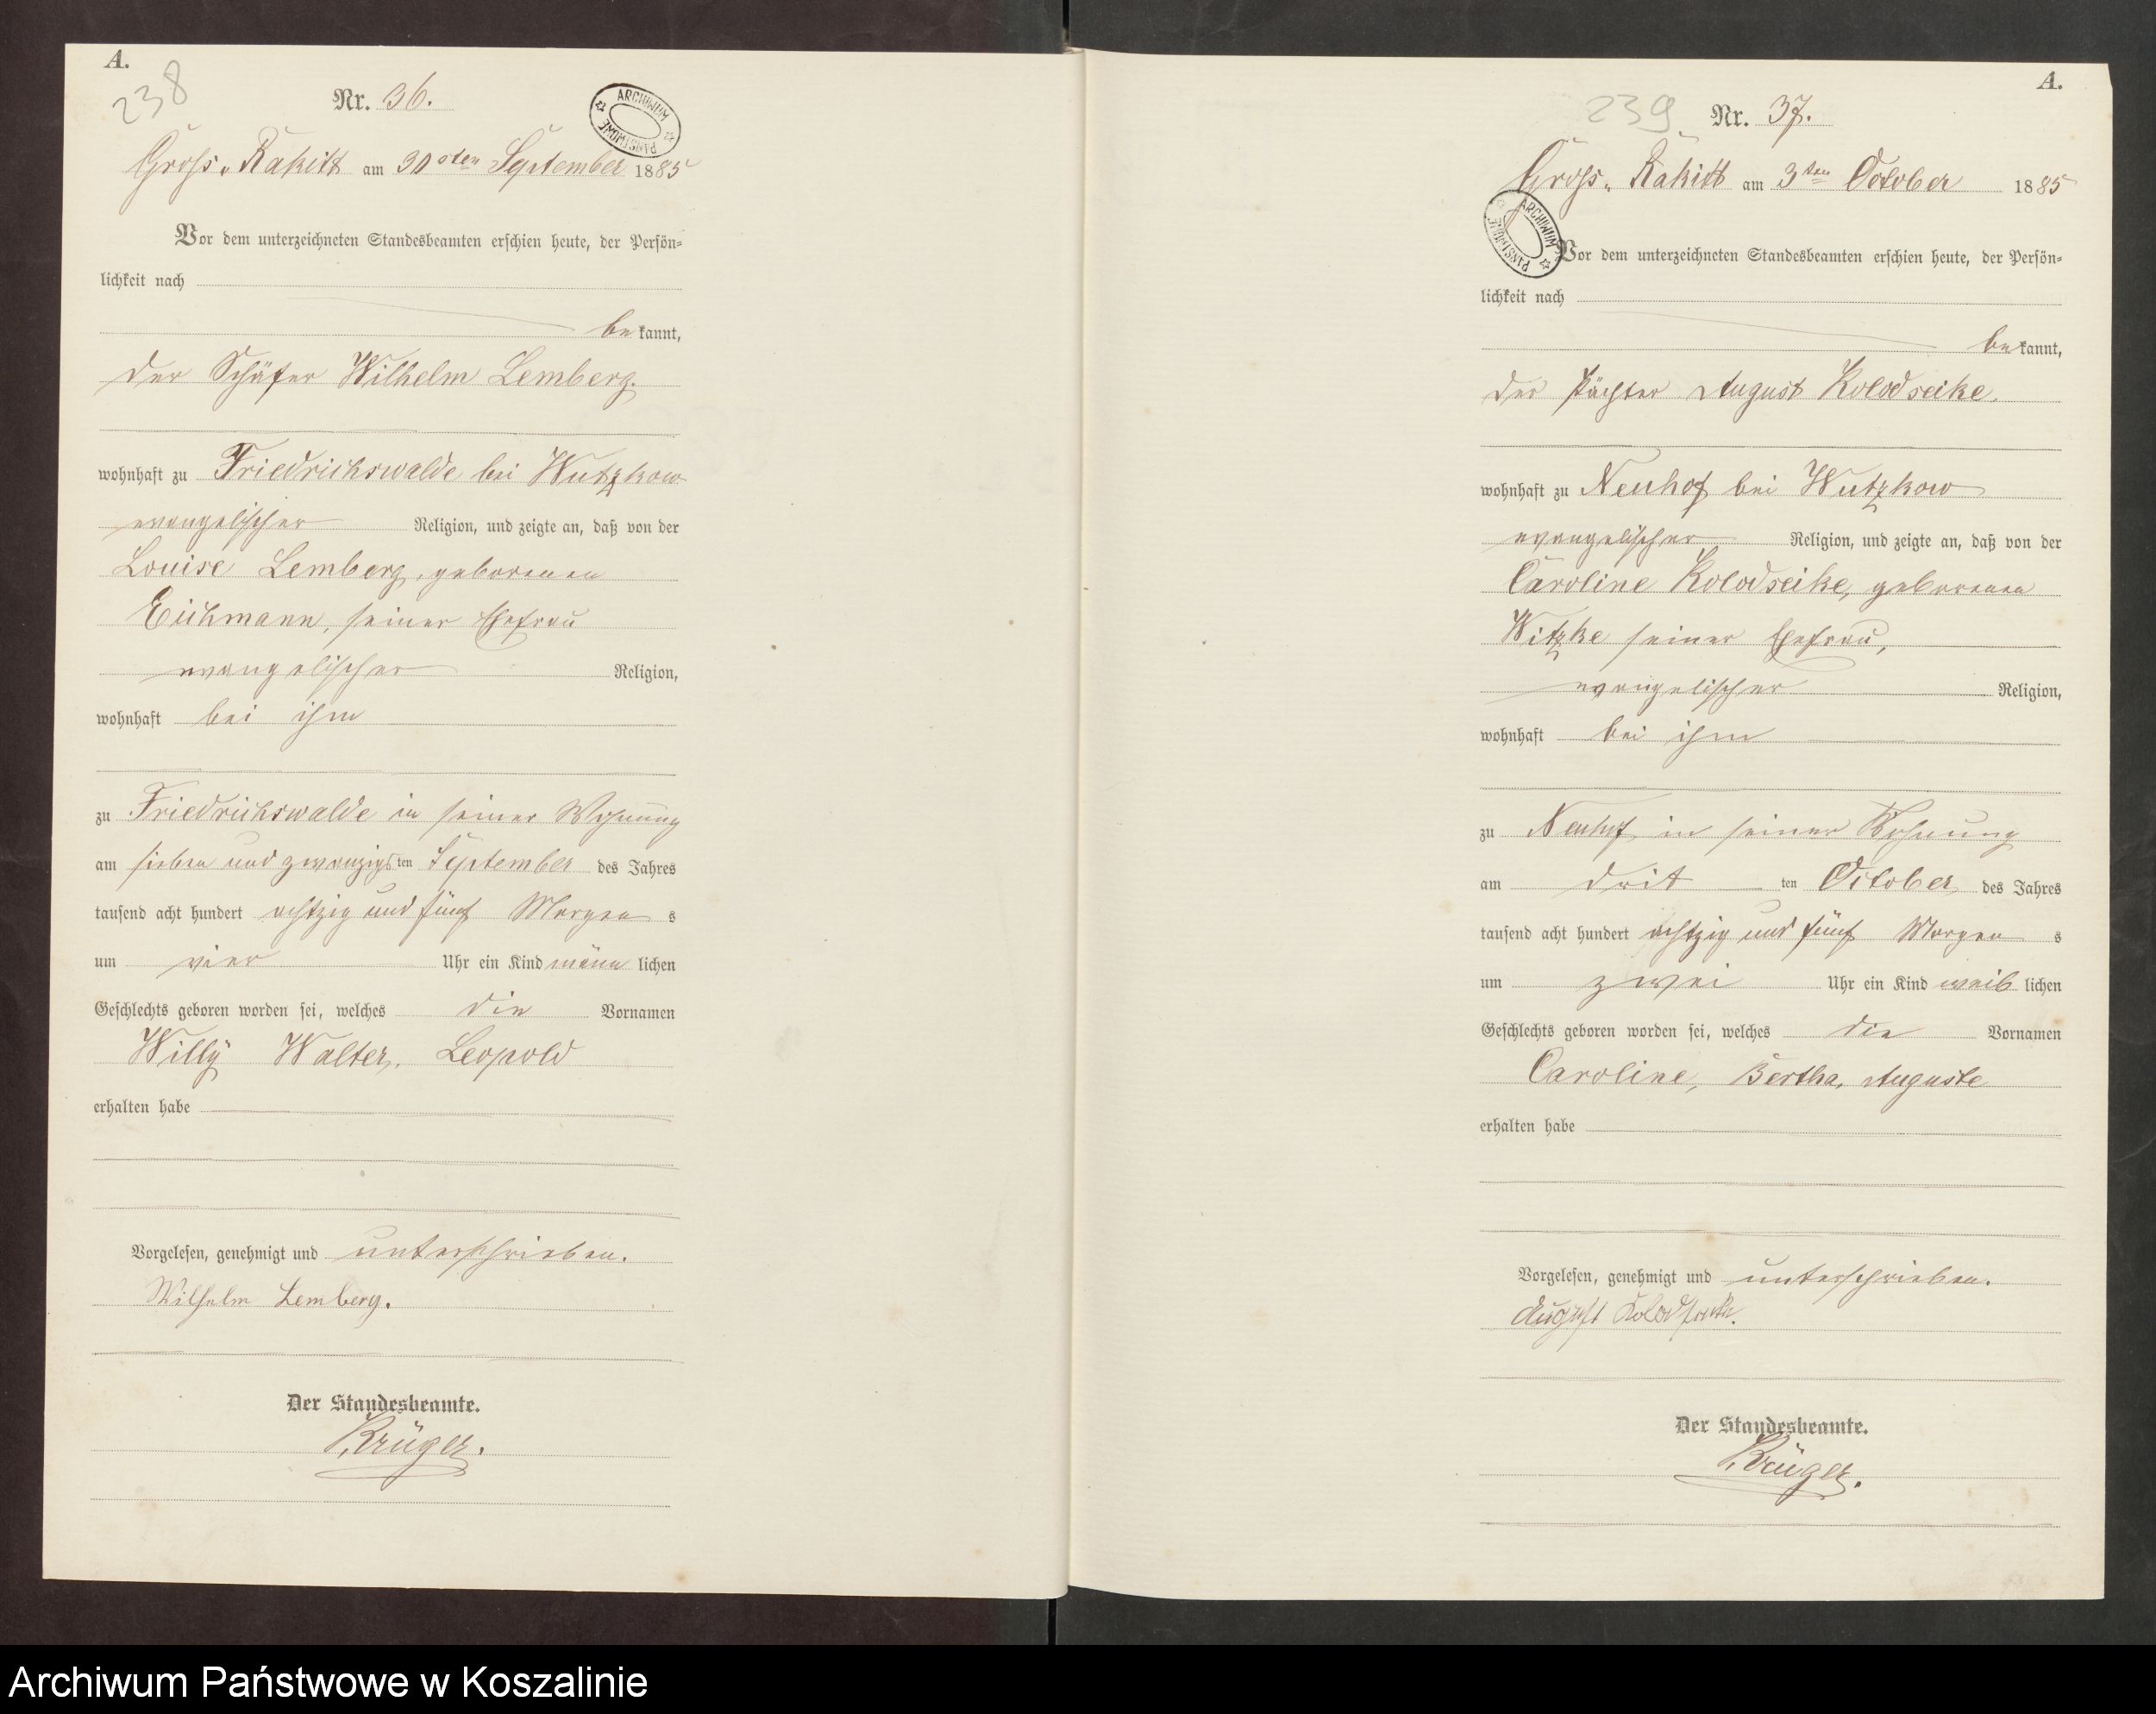 A.
238
Nr. 36.
ARCHIWUM PAŃSTWOWE
Gross-Rakitt am 30sten September 1885
Vor dem unterzeichneten Standesbeamten erschien heute, der Persön=
lichkeit nach
bekannt,
der Schäfer Wilhelm Lemberg.
wohnhaft zu Friedrichswalde bei Wutzkow
evangelischer Religion, und zeigte an, daß von der
Louise Lemberg, geborenen
Eichmann, seiner Ehefrau
evangelischer Religion,
wohnhaft bei ihm
zu Friedrichswalde in seiner Wohnung
am sieben und zwanzigsten September des Jahres
tausend acht hundert achtzig und fünf Morgens
um vier Uhr ein Kind männlichen
Geschlechts geboren worden sei, welches die Vornamen
Willy Walter, Leopold
erhalten habe
Vorgelesen, genehmigt und unterschrieben.
Wilhelm Lemberg.
Der Standesbeamte.
Krüger.
A.
239
Nr. 37.
Gross-Rakitt am 3ten October 1885
ARCHIWUM PAŃSTWOWE
Vor dem unterzeichneten Standesbeamten erschien heute, der Persön=
lichkeit nach
bekannt,
der Pächter August Kolodseike.
wohnhaft zu Neuhof bei Wutzkow
evangelischer Religion, und zeigte an, daß von der
Caroline Kolodseike, geborenen
Witzke seiner Ehefrau,
evangelischer Religion,
wohnhaft bei ihm
zu Neuhof in seiner Wohnung
am dritten October des Jahres
tausend acht hundert achtzig und fünf Morgens
um zwei Uhr ein Kind weiblichen
Geschlechts geboren worden sei, welches die Vornamen
Caroline, Bertha, Auguste
erhalten habe
Vorgelesen, genehmigt und unterschrieben.
August
Der Standesbeamte.
Krüger.
Archiwum Państwowe w Koszalinie